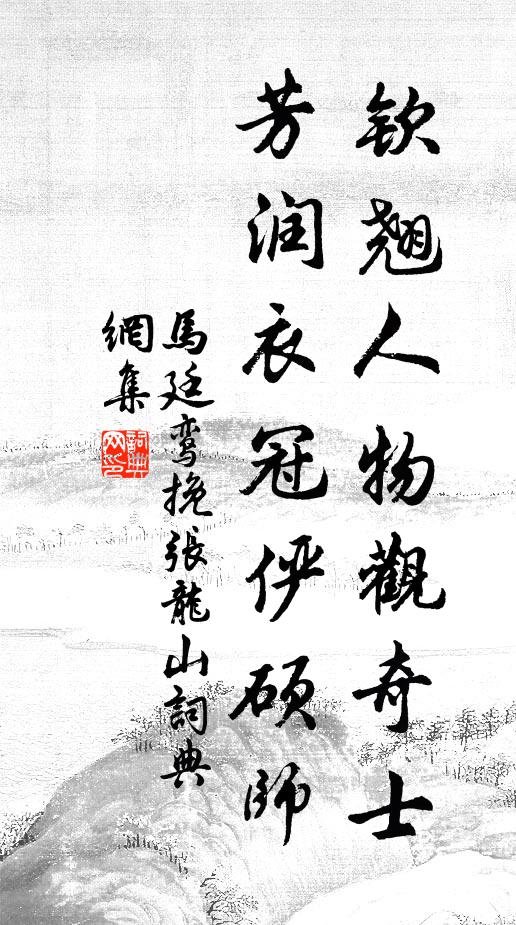 钦翘人物觀奇士
芳润衣冠俨硕師
馬廷鸾挽張龍山詞典
網集
詞典
网印